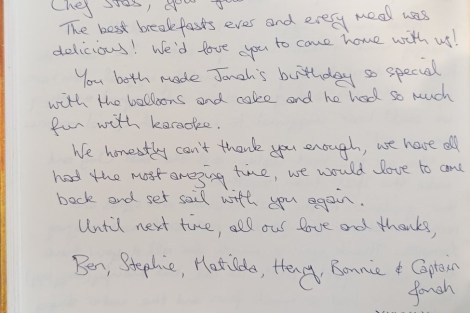 Chef Stas, your
The best breakfasts ever and every meal was
delicious! We'd love you to come home with us!
You both made Jonah's birthday so special
with the balloons and cake and he had so much
fun with karaoke.
We honestly can't thank you enough, we have all
had the most amazing time, we would love to come
back and set sail with you again.
Until next time, all our love and thanks,
Ben, Stephie, Matilda, Henry, Bonnie & Captain
Jonah